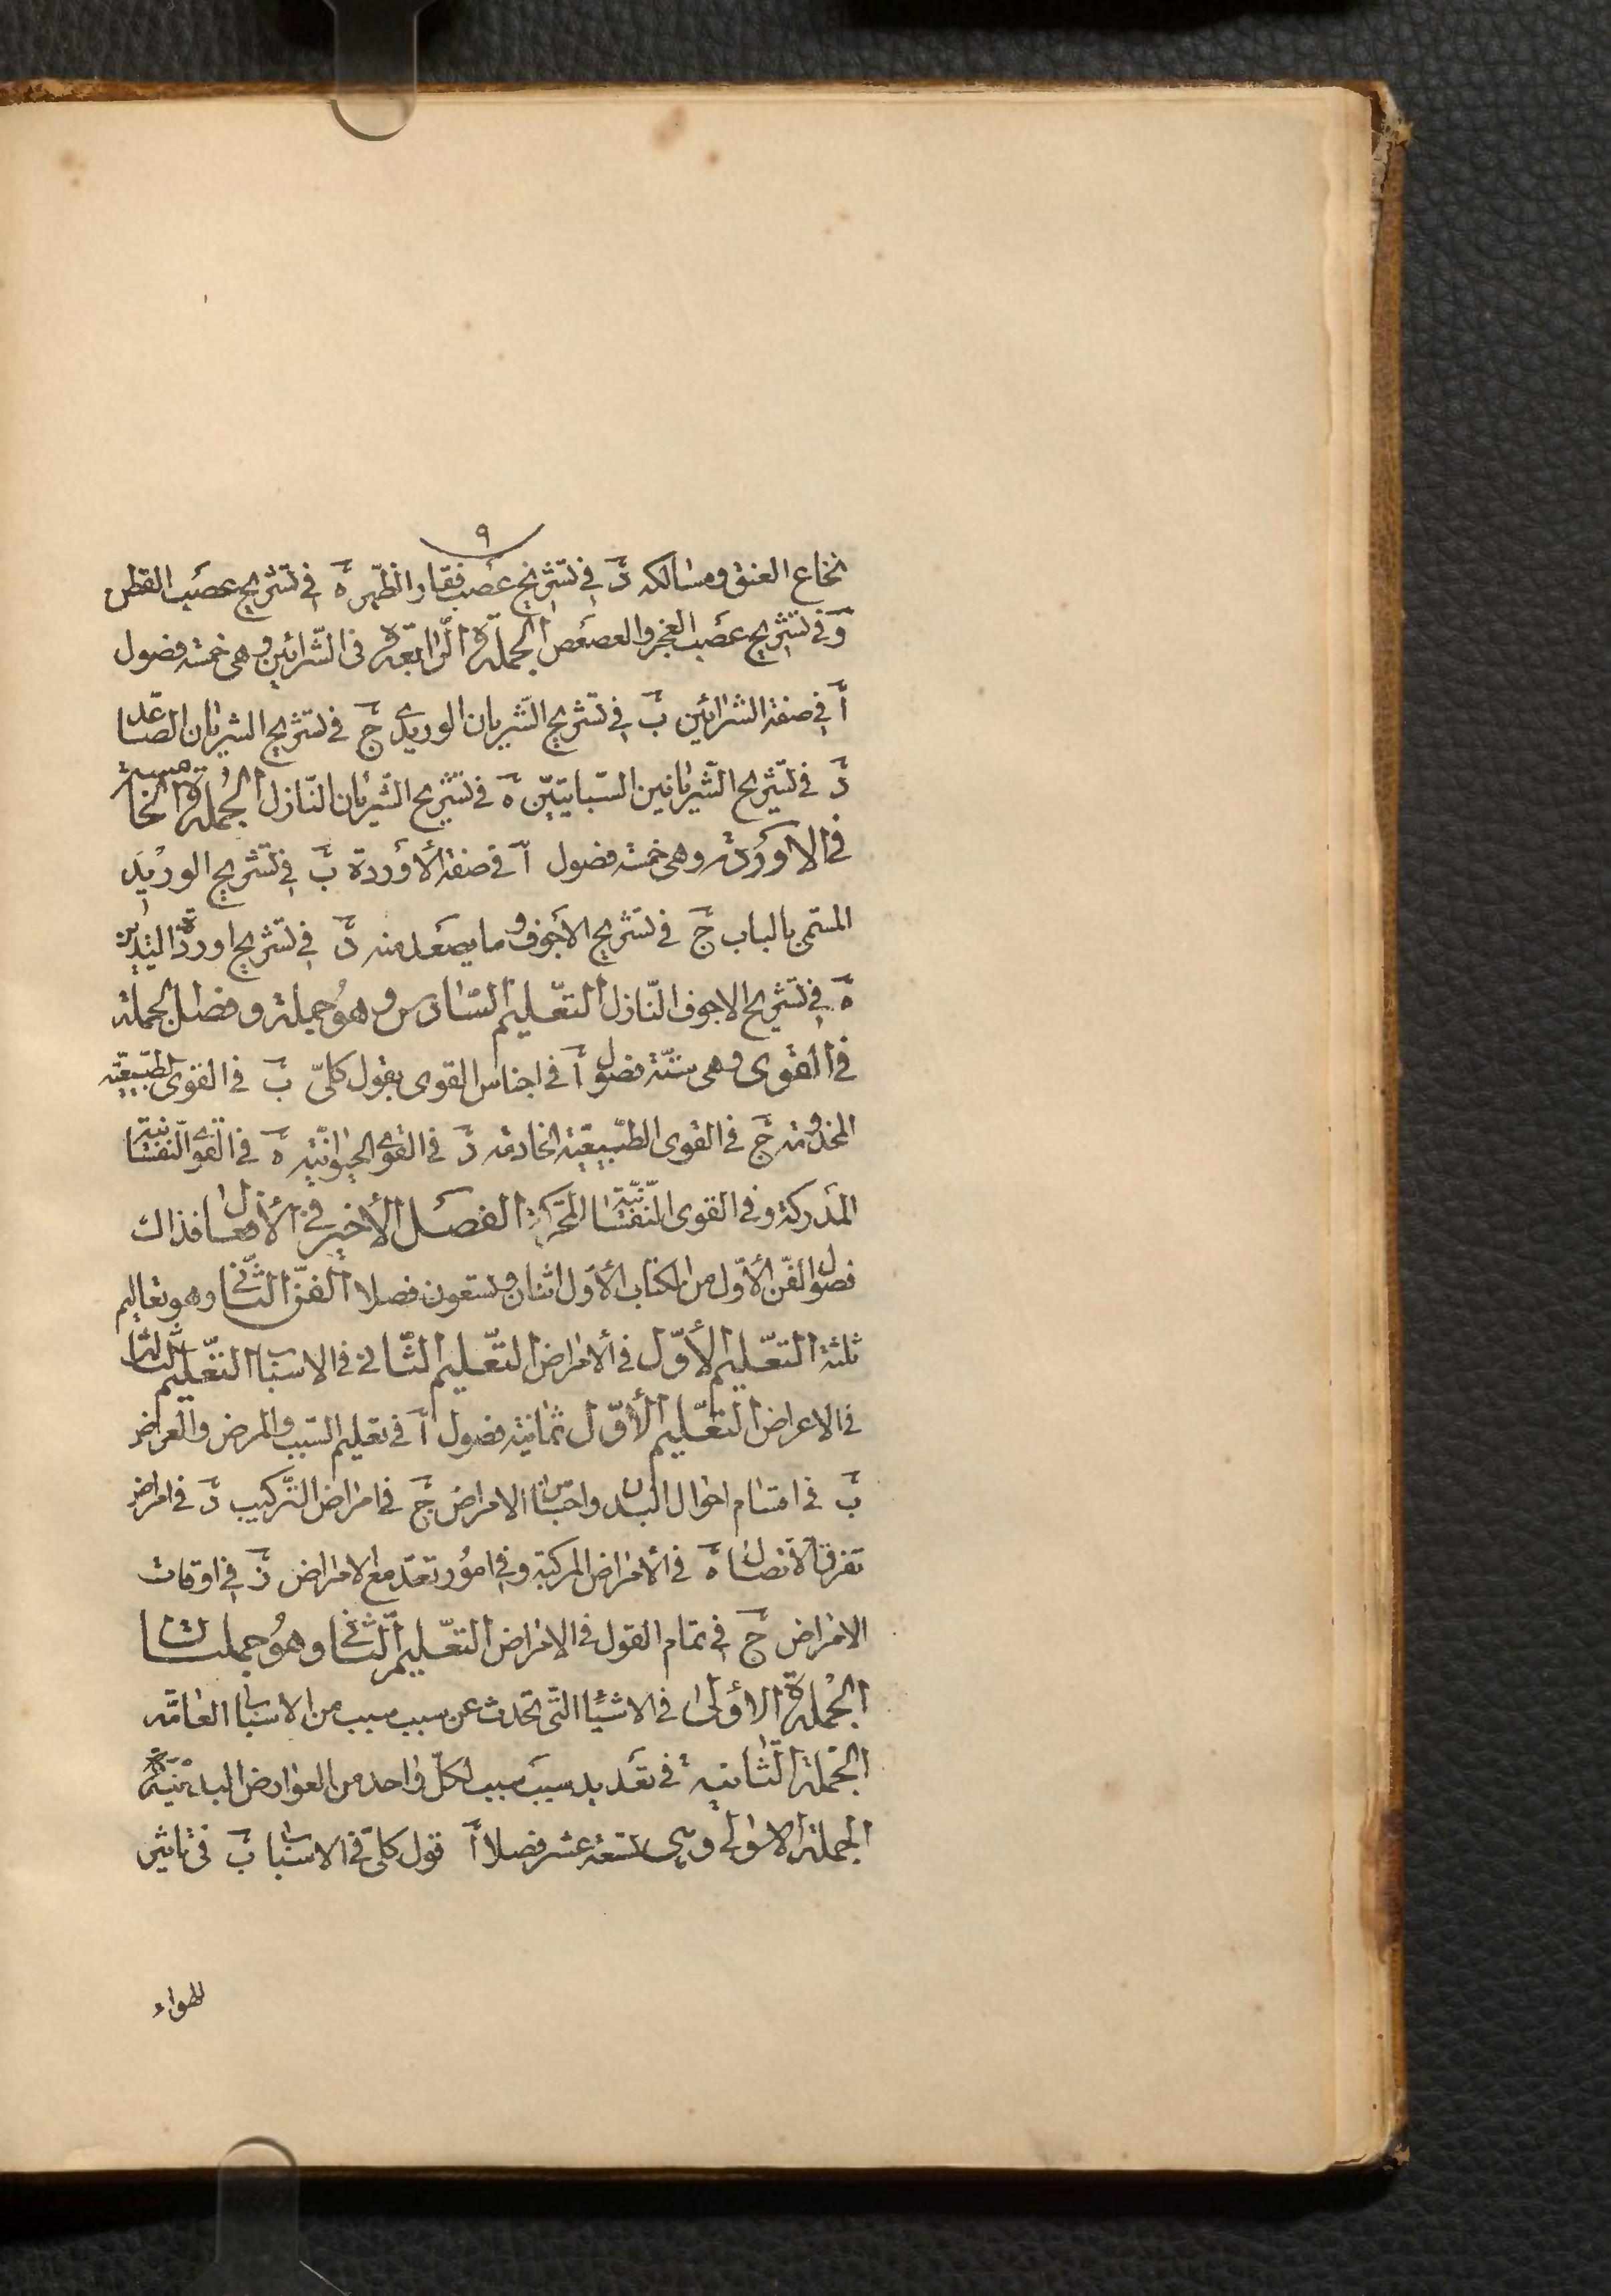 ٩
نخاع العنق ومسالكه د في تشريح عصب فقار الظهر ه في تشريح عصب القطن
و في تشريح عصب العجز والعصعص الجملة الرابعة في الشرائين وهي خمسة فصول
أ في صفة الشرائين ب في تشريح الشريان الوريدي ج في تشريح الشريان الصاعد
د في تشريح الشريانين السباتيين ه في تشريح الشريان النازل الجملة الخامسة
في الاوردة وهي خمسة فصول أ في صفة الأوردة ب في تشريح الوريد
المسمى بالباب ج في تشريح الأجوف وما يصعد منه د في تشريح اوردة اليدين
ه في تشريح الاجوف النازل التعليم السادس وهو جملة وفصل الجملة
في القوى وهي ستة فصول أ في اجناس القوى بقول كلي ب في القوى الطبيعية
المخدومة ج في القوى الطبيعية الخادمة د في القوى الحيوانية ه في القوى النفسانية
المدركة و في القوى النفسانية المحركة الفصل الأخير في الأفعال فذاك
فصول الفن الأول من الكتاب الأول اثنان وتسعون فصلا الفن الثاني وهو تعاليم
ثلثة التعليم الأول في الأمراض التعليم الثاني في الاسباب التعليم الثالث
في الاعراض التعليم الأول ثمانية فصول أ في تعليم السبب والمرض والعرض
ب في اقسام احوال البدن واجناس الامراض ج في امراض التركيب د في امراض
تفرق الاتصال ه في الأمراض المركبة و في امور تعد مع الامراض ز في اوقات
الامراض ح في تمام القول في الامراض التعليم الثاني وهو جملتان
الجملة الاولى في الاشياء التي تحدث عن سبب سبب من الاسباب العامة
الجملة الثانية في تعديد سبب سبب لكل واحد من العوارض البدنية
الجملة الاولى وهي تسعة عشر فصلا أ قول كلي في الاسباب ب في تاثير
الهواء